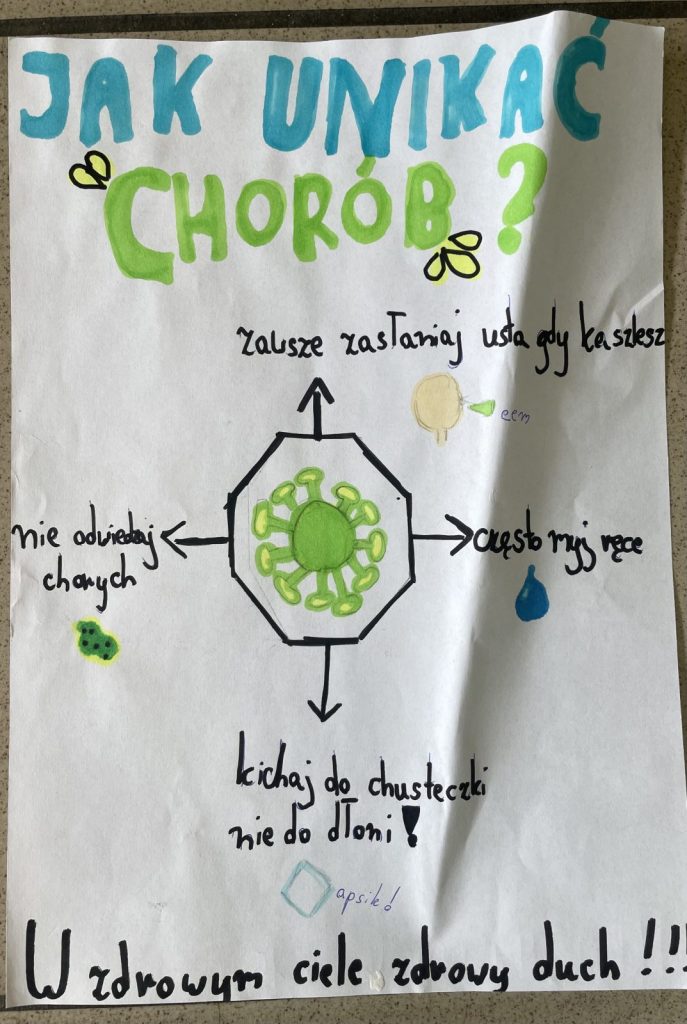 JAK UNIKAĆ
CHORÓB?
zawsze zasłaniaj usta gdy kaszlesz
eem
nie odwiedzaj
chorych
często myj ręce
kichaj do chusteczki
nie do dłoni!
apsik!
W zdrowym ciele zdrowy duch!!!